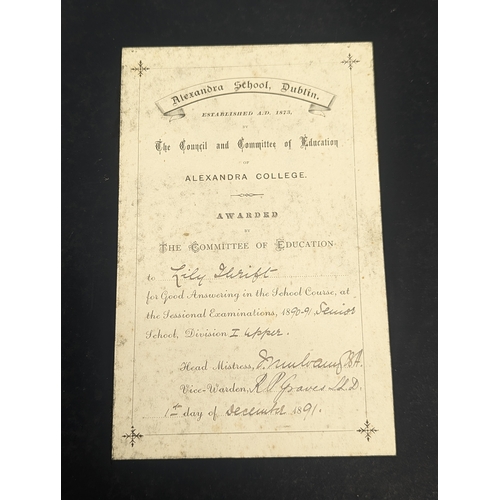 Alexandra School, Dublin.
ESTABLISHED A.D. 1873,
BY
The Council and Committee of Education
OF
ALEXANDRA COLLEGE.
AWARDED
BY
THE COMMITTEE OF EDUCATION
to Lily Thrift
for Good Answering in the School Course, at
the Sessional Examinations, 1890-91. Senior
School, Division I upper.
Head Mistress, I. Mulvany B.A.
Vice-Warden, R P Graves LL.D.
1st day of December 1891.